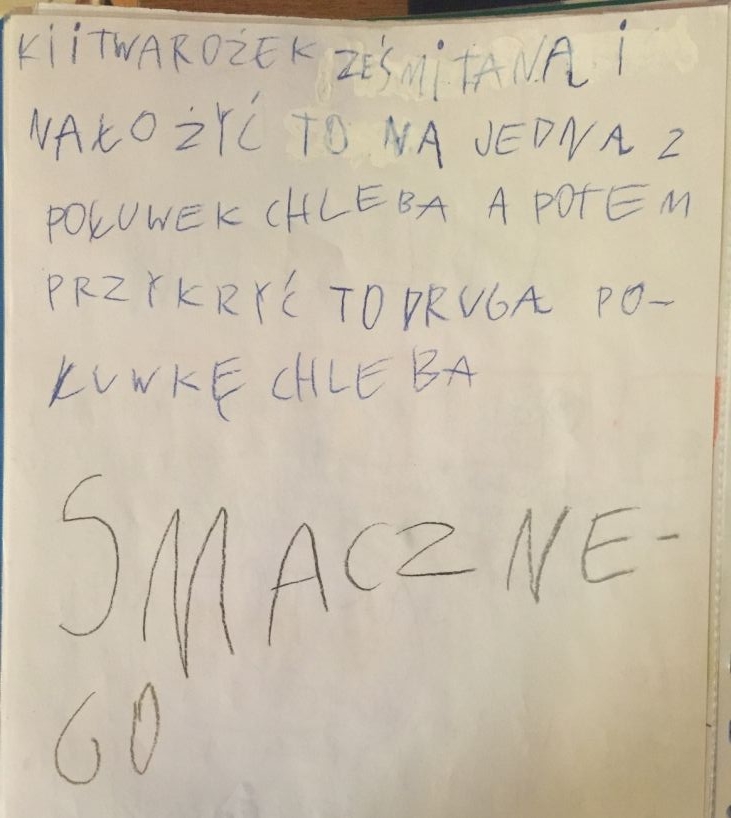 KIITWAROŻEK ZEŚMITANĄ I
NAŁOŻYĆ TO NA JEDNĄ Z
POŁUWEK CHLEBA A POTEM
PRZYKRYĆ TO DRUGĄ PO-
ŁUWKĘ CHLEBA
SMACZNE-
GO